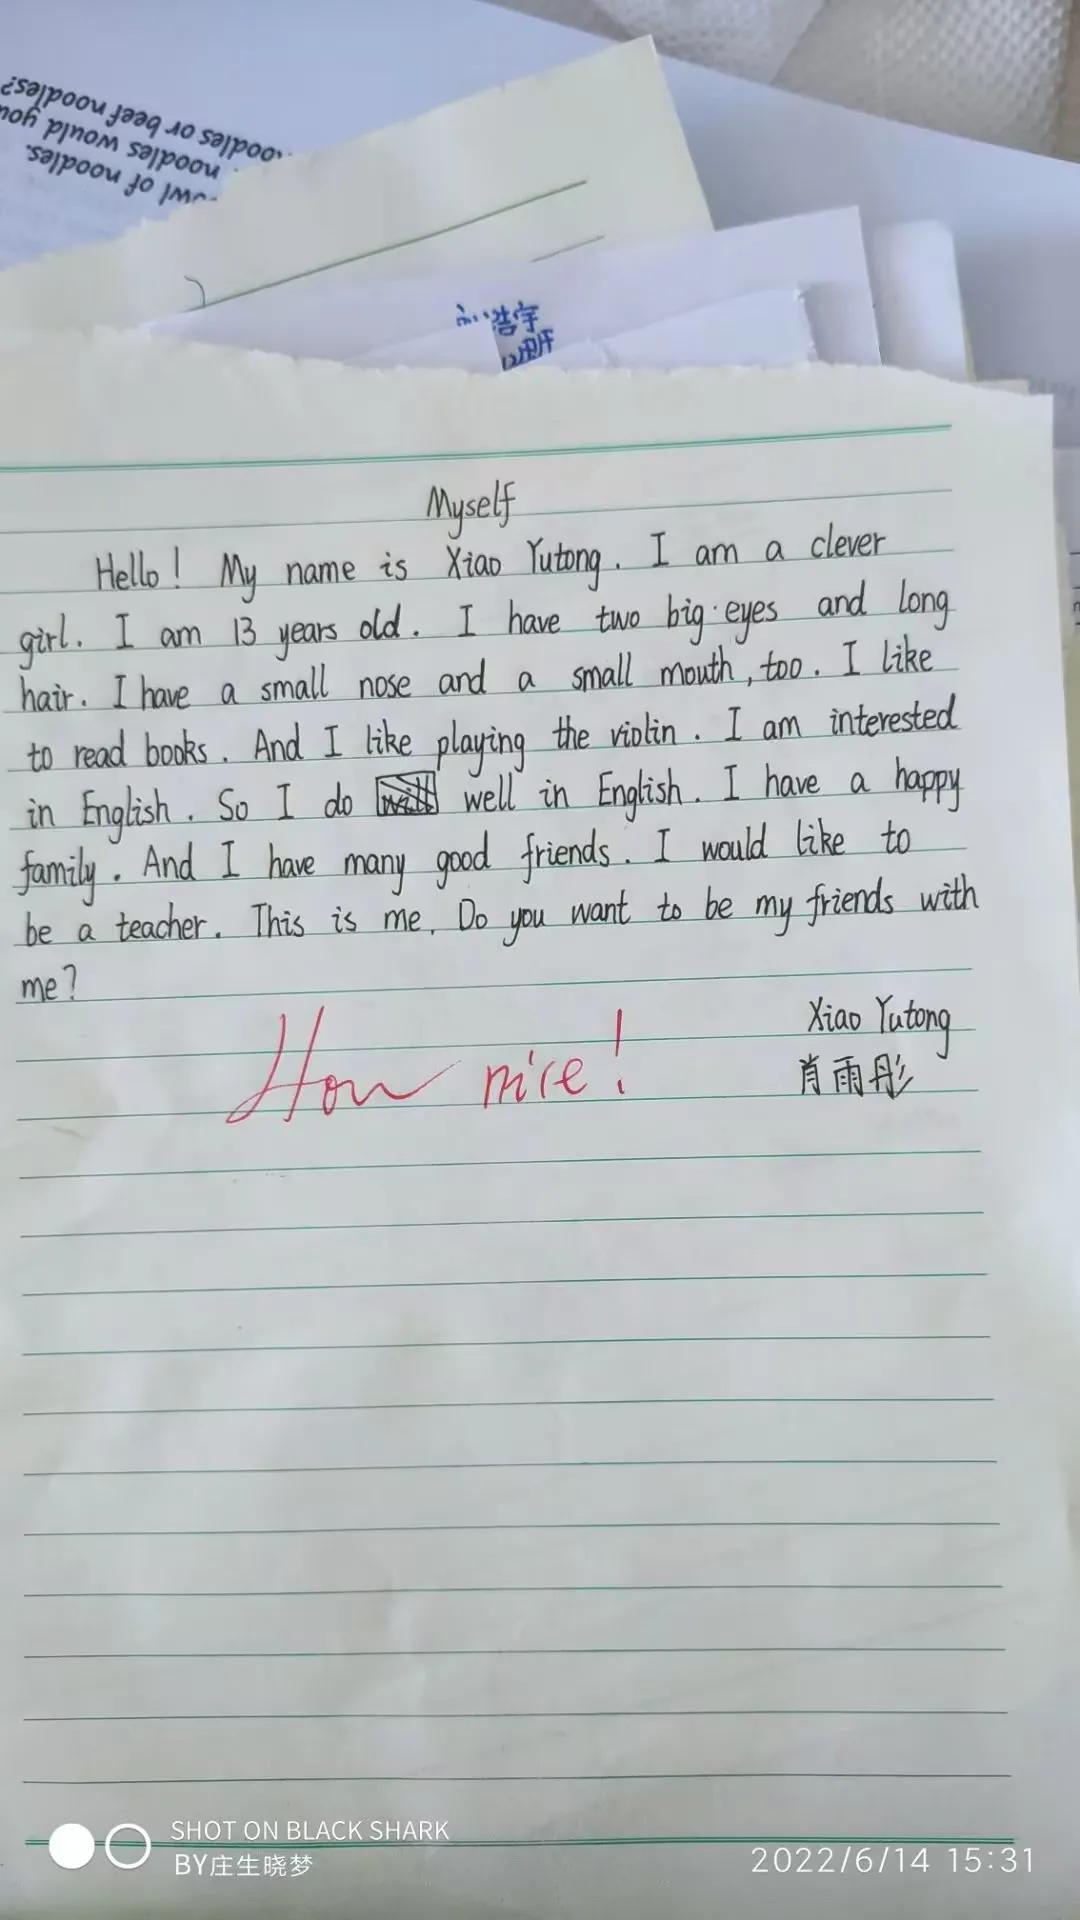 oodles or beef noodles?
noodles would you
owl of noodles.
浩宇
Myself
Hello! My name is Xiao Yutong. I am a clever
girl. I am 13 years old. I have two big eyes and long
hair. I have a small nose and a small mouth, too. I like
to read books. And I like playing the violin. I am interested
in English. So I do well in English. I have a happy
family. And I have many good friends. I would like to
be a teacher. This is me. Do you want to be my friends with
me?
How nice!
Xiao Yutong
肖雨彤
SHOT ON BLACK SHARK
BY庄生晓梦
2022/6/14 15:31